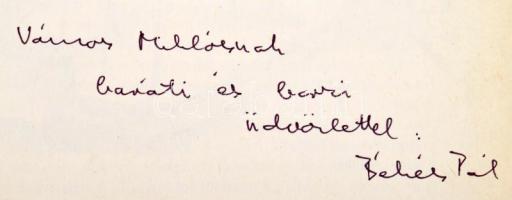 Vámos Miklósnak
baráti és
üdvözlettel:
Békés Pál